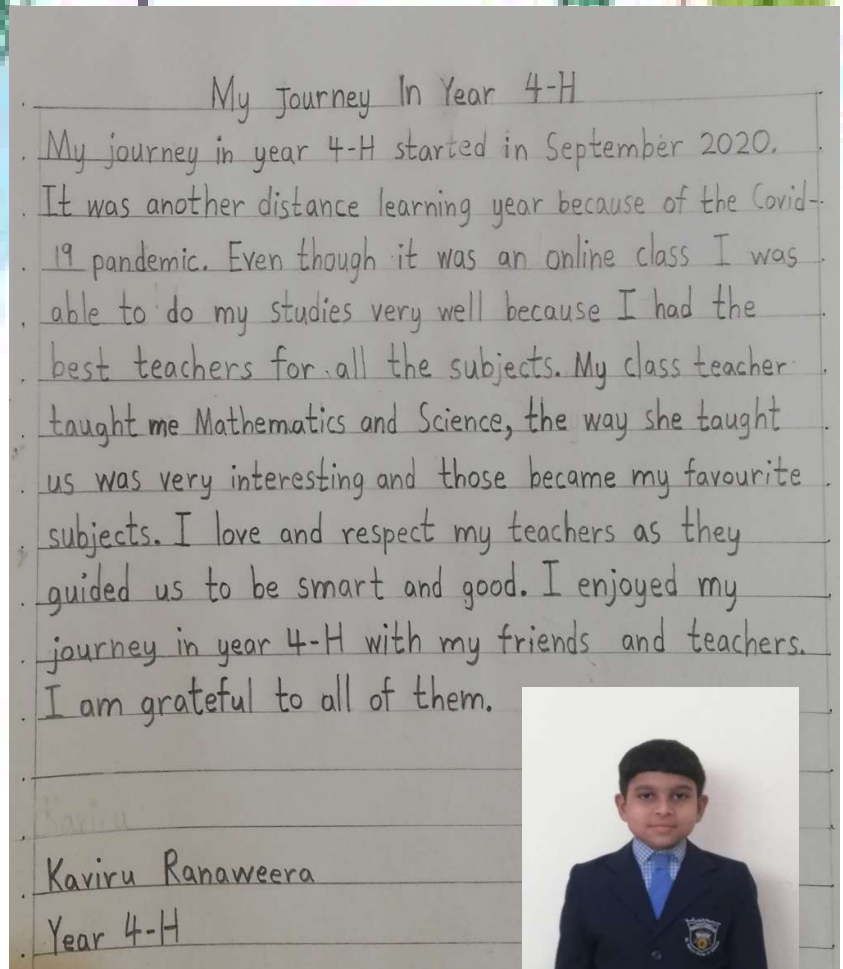 My Journey In Year 4-H
My journey in year 4-H started in September 2020.
It was another distance learning year because of the Covid-
19 pandemic. Even though it was an online class I was
able to do my studies very well because I had the
best teachers for all the subjects. My class teacher
taught me Mathematics and Science, the way she taught
us was very interesting and those became my favourite
subjects. I love and respect my teachers as they
guided us to be smart and good. I enjoyed my
journey in year 4-H with my friends and teachers.
I am grateful to all of them.
Kaviru
Kaviru Ranaweera
Year 4-H